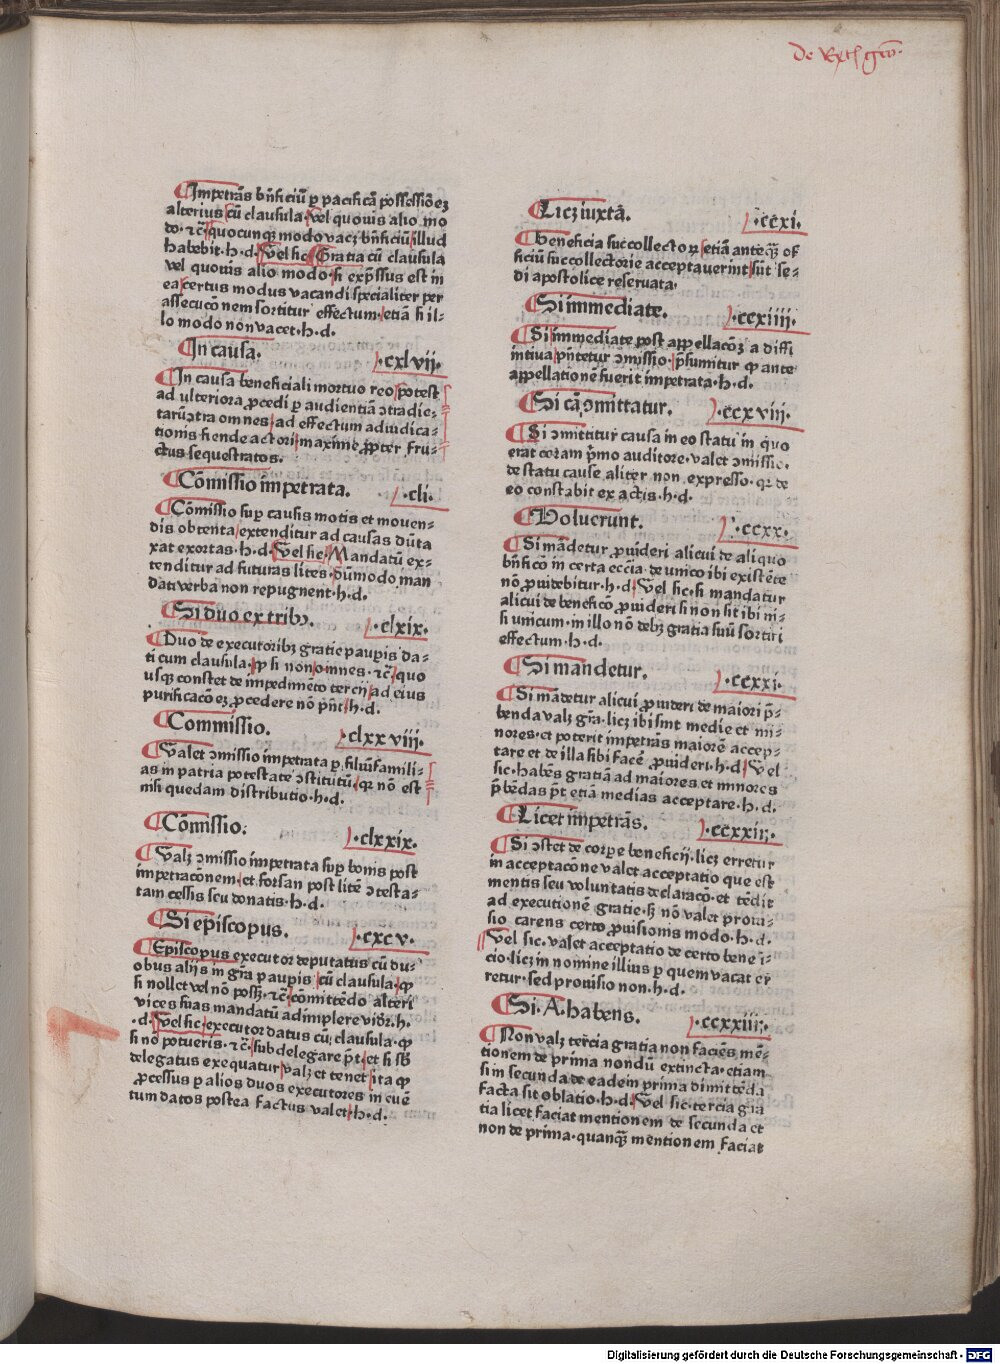 ¶Impetrãs bñficiũ ꝑ pacificã possessiõeꝫ
alterius cũ clausula. vel quouis alio mo
do. ⁊c̃. quocunqꝫ modo vacꝫ bñficiũ illud
habebit. h. d. Vel sic ¶Gratia cũ clausula
vel quouis alio modo. si exp̃ssus est in
ea certus modus vacandi specialiter per
assecucõnem sortitur effectum. etiã si il-
lo modo non vacet. h. d.
¶In causa. .cxlvii.
¶In causa beneficiali mortuo reo potest
ad vlteriora ꝓcedi ꝑ audientiã ↄtradic-
tarũ ↄtra omnes. ad effectum adiudica-
tionis fiende actori. maxime ꝓpter fru-
ctus sequestratos.
¶Cõmissio impetrata. .cli.
¶Cõmissio suꝑ causis motis et mouen-
dis obtenta. extenditur ad causas dũta
xat exortas. h. d. Vel sic. Mandatũ ex-
tenditur ad futuras lites. dũmodo man
dati verba non repugnent. h. d.
¶Si duo ex tribꝫ. .clxix.
¶Duo de executoribꝫ gratie pauꝑis da-
ti cum clausula. ꝙ si non omnes. ⁊c̃. quo
usqꝫ constet de impedimẽto tercij. ad eius
purificacõeꝫ ꝓcedere nõ pñt. h. d.
¶Commissio. .clxxviii.
¶Valet ↄmissio impetrata ꝑ filiũfamili-
as in patria potestate ↄstitutũ. qr nõ est
nisi quedam distributio. h. d.
¶Cõmissio. .clxxix.
¶Valꝫ ↄmissio impetrata suꝑ bonis post
impetracõnem. et forsan post litẽ ↄtesta-
tam cessis seu donatis. h. d.
¶Si episcopus. .cxcv.
¶Episcopus executor deputatus cũ du-
obus alijs in gr̃a pauꝑis cũ clausula. ꝙ
si nollet vel nõ possꝫ. ⁊c̃. cõmittẽdo alteri
vices suas mandatũ adimplere vidr̃. h.
.d. Vel sic. executor datus cũ clausula. ꝙ
si nõ potueris. ⁊c̃. subdelegare p̃t. et si sb̃
delegatus exequatur. valꝫ et tenet. ita ꝙ
ꝓcessus ꝑ alios duos executores in euẽ
tum datos postea factus valet. h. d.
de rescriptis
¶Licꝫ iuxtã. .ccxi.
¶Beneficia succollectoꝝ etiã anteqꝫ̃ of
ficiũ succollectorie acceptauerint sũt se-
di apostolice reseruata.
¶Si immediate. .ccxiiii.
¶Si immediate post appellacõeꝫ a diffi
initiua p̃ntetur ↄmissio. p̃sumitur ꝙ ante
appellationẽ fuerit impetrata. h. d.
¶Si cã ↄmittatur. .ccxviii.
¶Si ↄmittitur causa in eo statu in quo
erat coram p̃mo auditore. valet ↄmissio.
de statu cause aliter non expresso. qr de
eo constabit ex actis. h. d.
¶Voluerunt. .ccxx.
¶Si mãdetur ꝓuideri alicui de aliquo
bñficõ in certa ecc̃ia. de vnico ibi existẽte
nõ ꝓuidebitur. h. d. Vel sic. si mandatur
alicui de beneficõ ꝓuideri si non sit ibi ni-
si vnicum. in illo nõ debꝫ gratia suũ sortiri
effectum. h. d.
¶Si mandetur. .ccxxi.
¶Si mãdetur alicui ꝓuideri de maiori p̃-
benda valꝫ gr̃a. licꝫ ibi sint medie et mi-
nores. et poterit impetrãs maiorẽ accep-
tare et de illa sibi facẽ ꝓuideri. h. d. Vel
sic. habẽs gratiã ad maiores et minores
p̃bẽdas p̃t etiã medias acceptare. h. d.
¶Licet impetrãs. .ccxxii.
¶Si ↄstet de corꝑe beneficij. licꝫ erretur
in acceptacõne valet acceptatio que est
mentis seu voluntatis declaracõ. et tẽdit
ad executionẽ gratie. sꝫ nõ valet proui-
sio carens certo ꝓuisionis modo. h. d.
Vel sic. valet acceptatio de certo bene i-
cio. licꝫ in nomine illius ꝑ quem vacat er̃
retur. sed prouisio non. h. d.
¶Si. A. habens. .ccxxiii.
¶Non valꝫ ter̃cia gratia non faciẽs mẽ-
tionem de prima nondũ extincta. etiam
si in secunda de eadem prima dimittẽda
facta sit oblatio. h. d. Vel sic. tercia gra
tia licet faciat mentionem de secunda et
non de prima. quanqꝫ̃ mentionem faciat
Digitalisierung gefördert durch die Deutsche Forschungsgemeinschaft - DFG